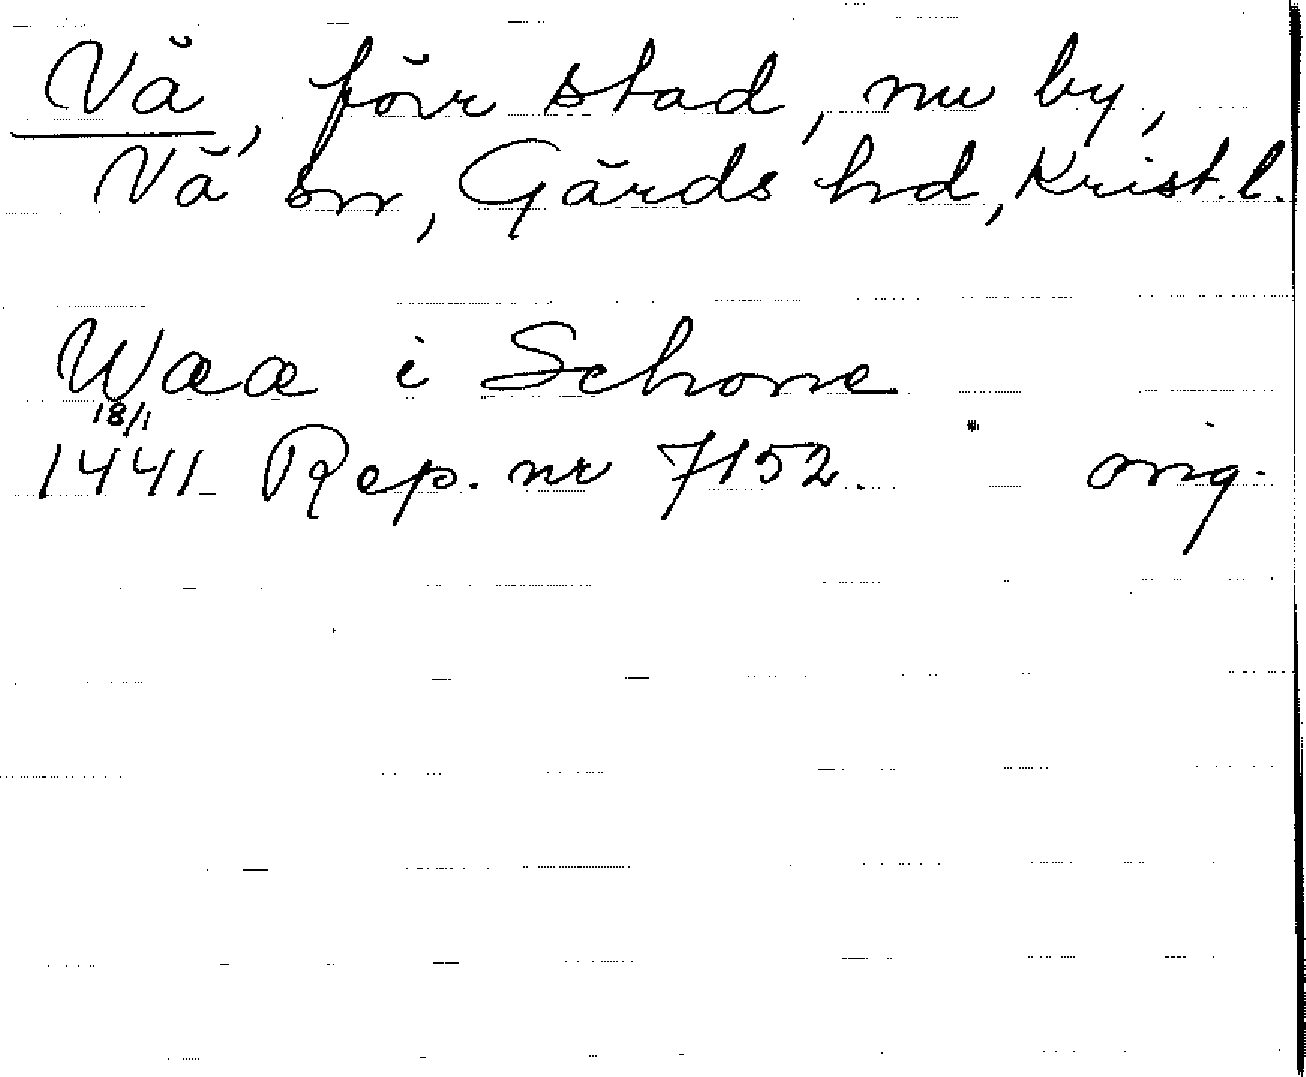 Vå, förr stad, nu by,
Vå sn, Gärds hd, Krist. l.
Waa i Schone
18/1
1441 Rep. nr 7152. orig.